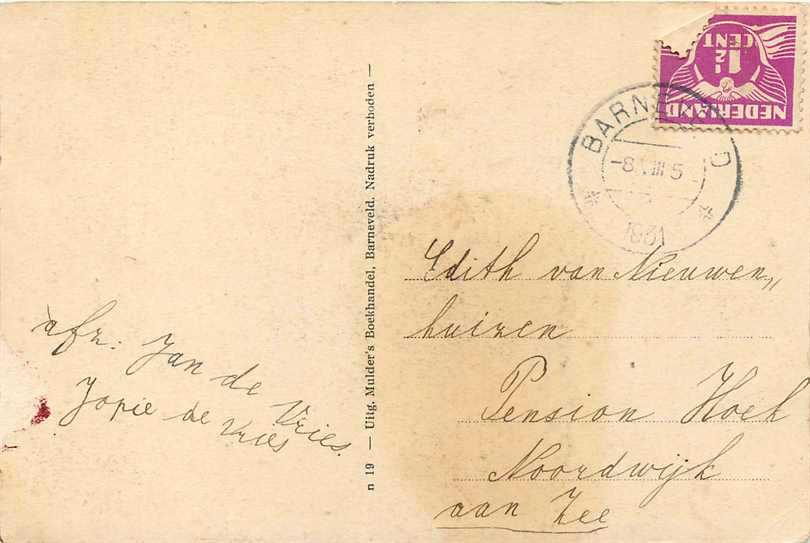 afz. Jan de Vries.
Jopie de
Vries
n 19 — Uitg. Mulder's Boekhandel, Barneveld. Nadruk verboden —
NEDERLAND
1½
CENT
BARNEVELD
-8.VIII 5
1931
Edith van Nieuwen„
huizen
Pension Hoek
Noordwijk
aan Zee